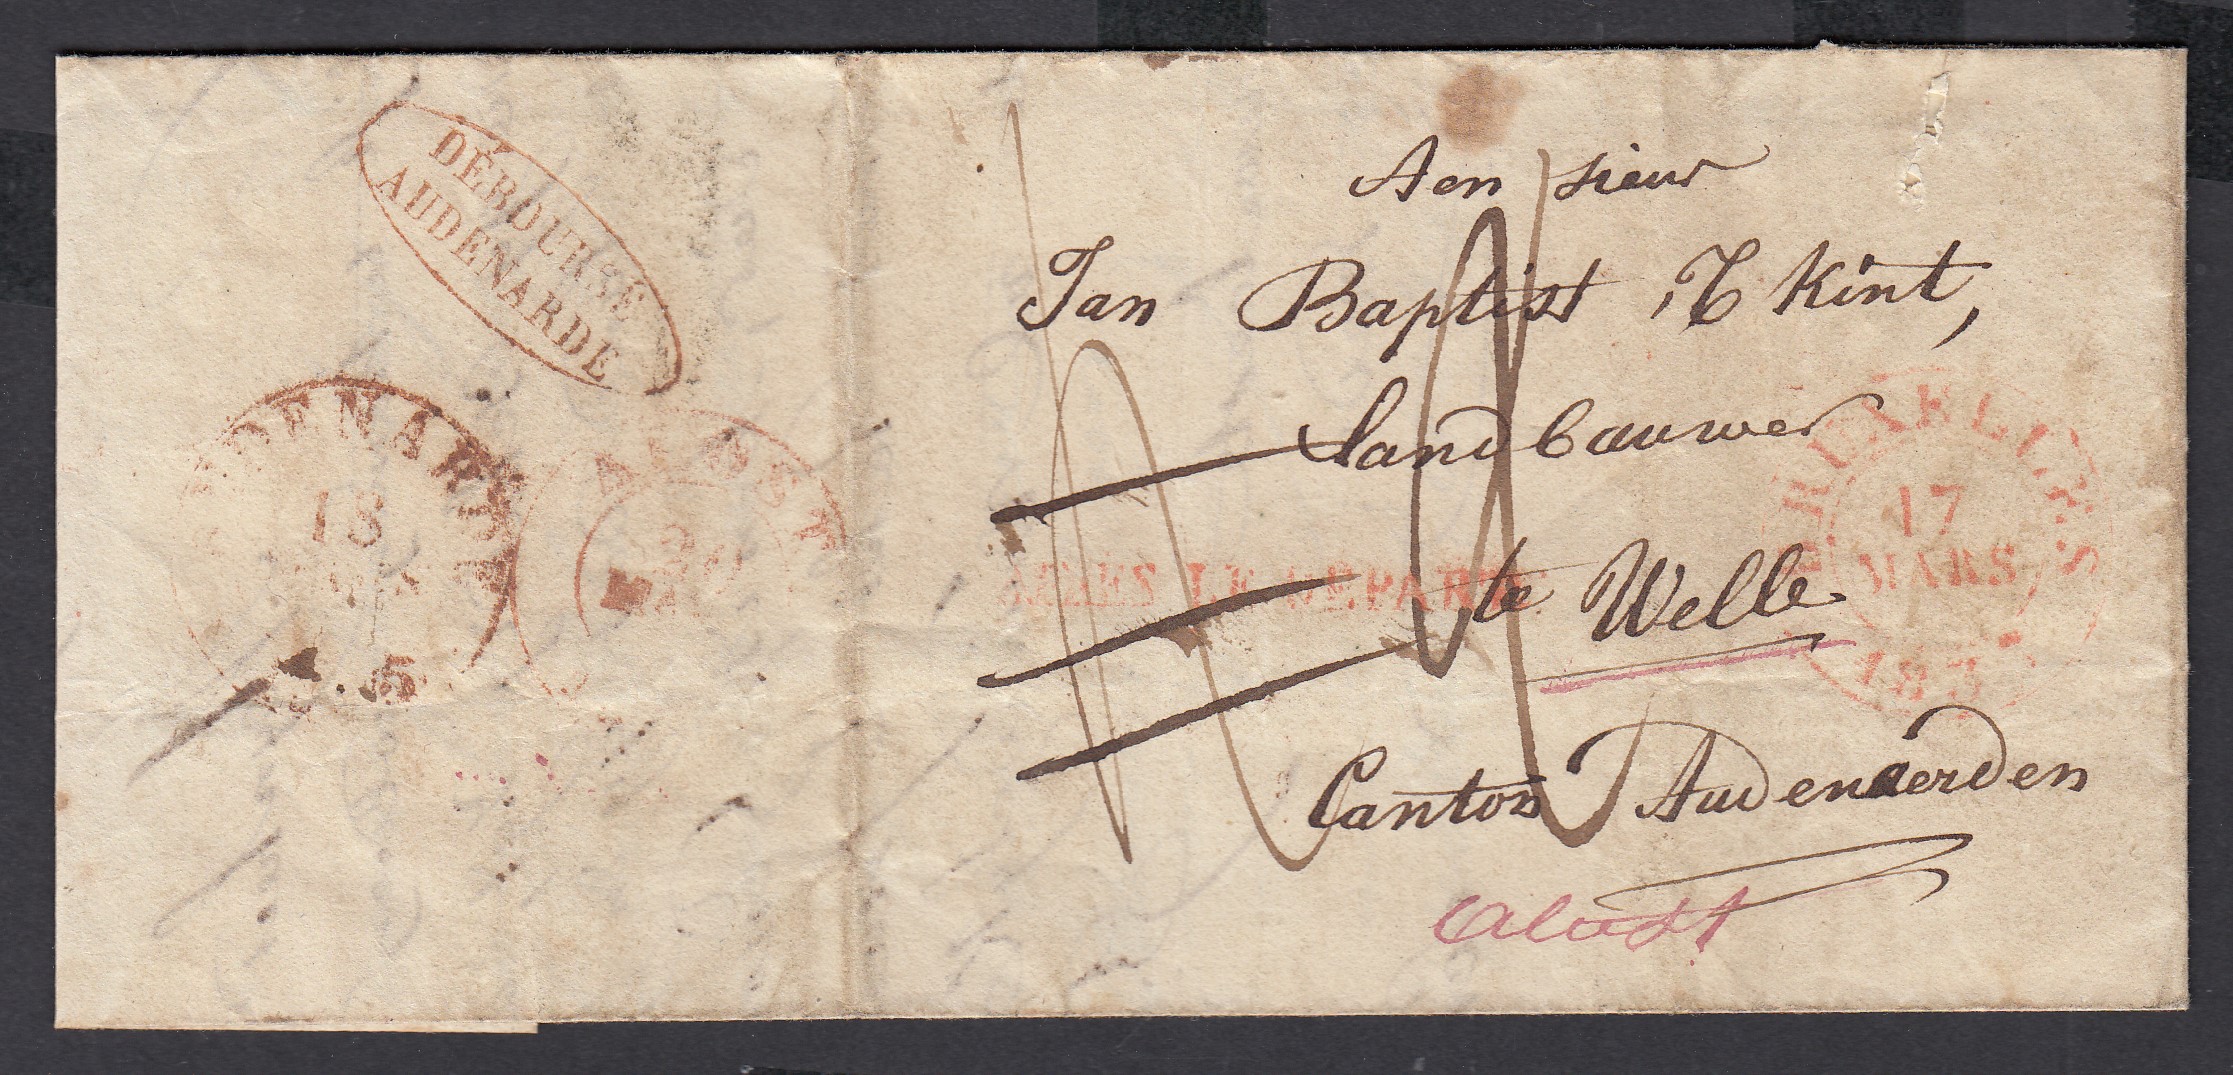 DÉBOURSÉ
AUDENARDE
AUDENARDE
18
5
ALOST
20
Aen sieur
Jan Baptist 'T Kint,
Landbauwer
te Welle
Canton Audenaerden
Alost
APRÈS LE DÉPART
BRUXELLES
17
MARS
183